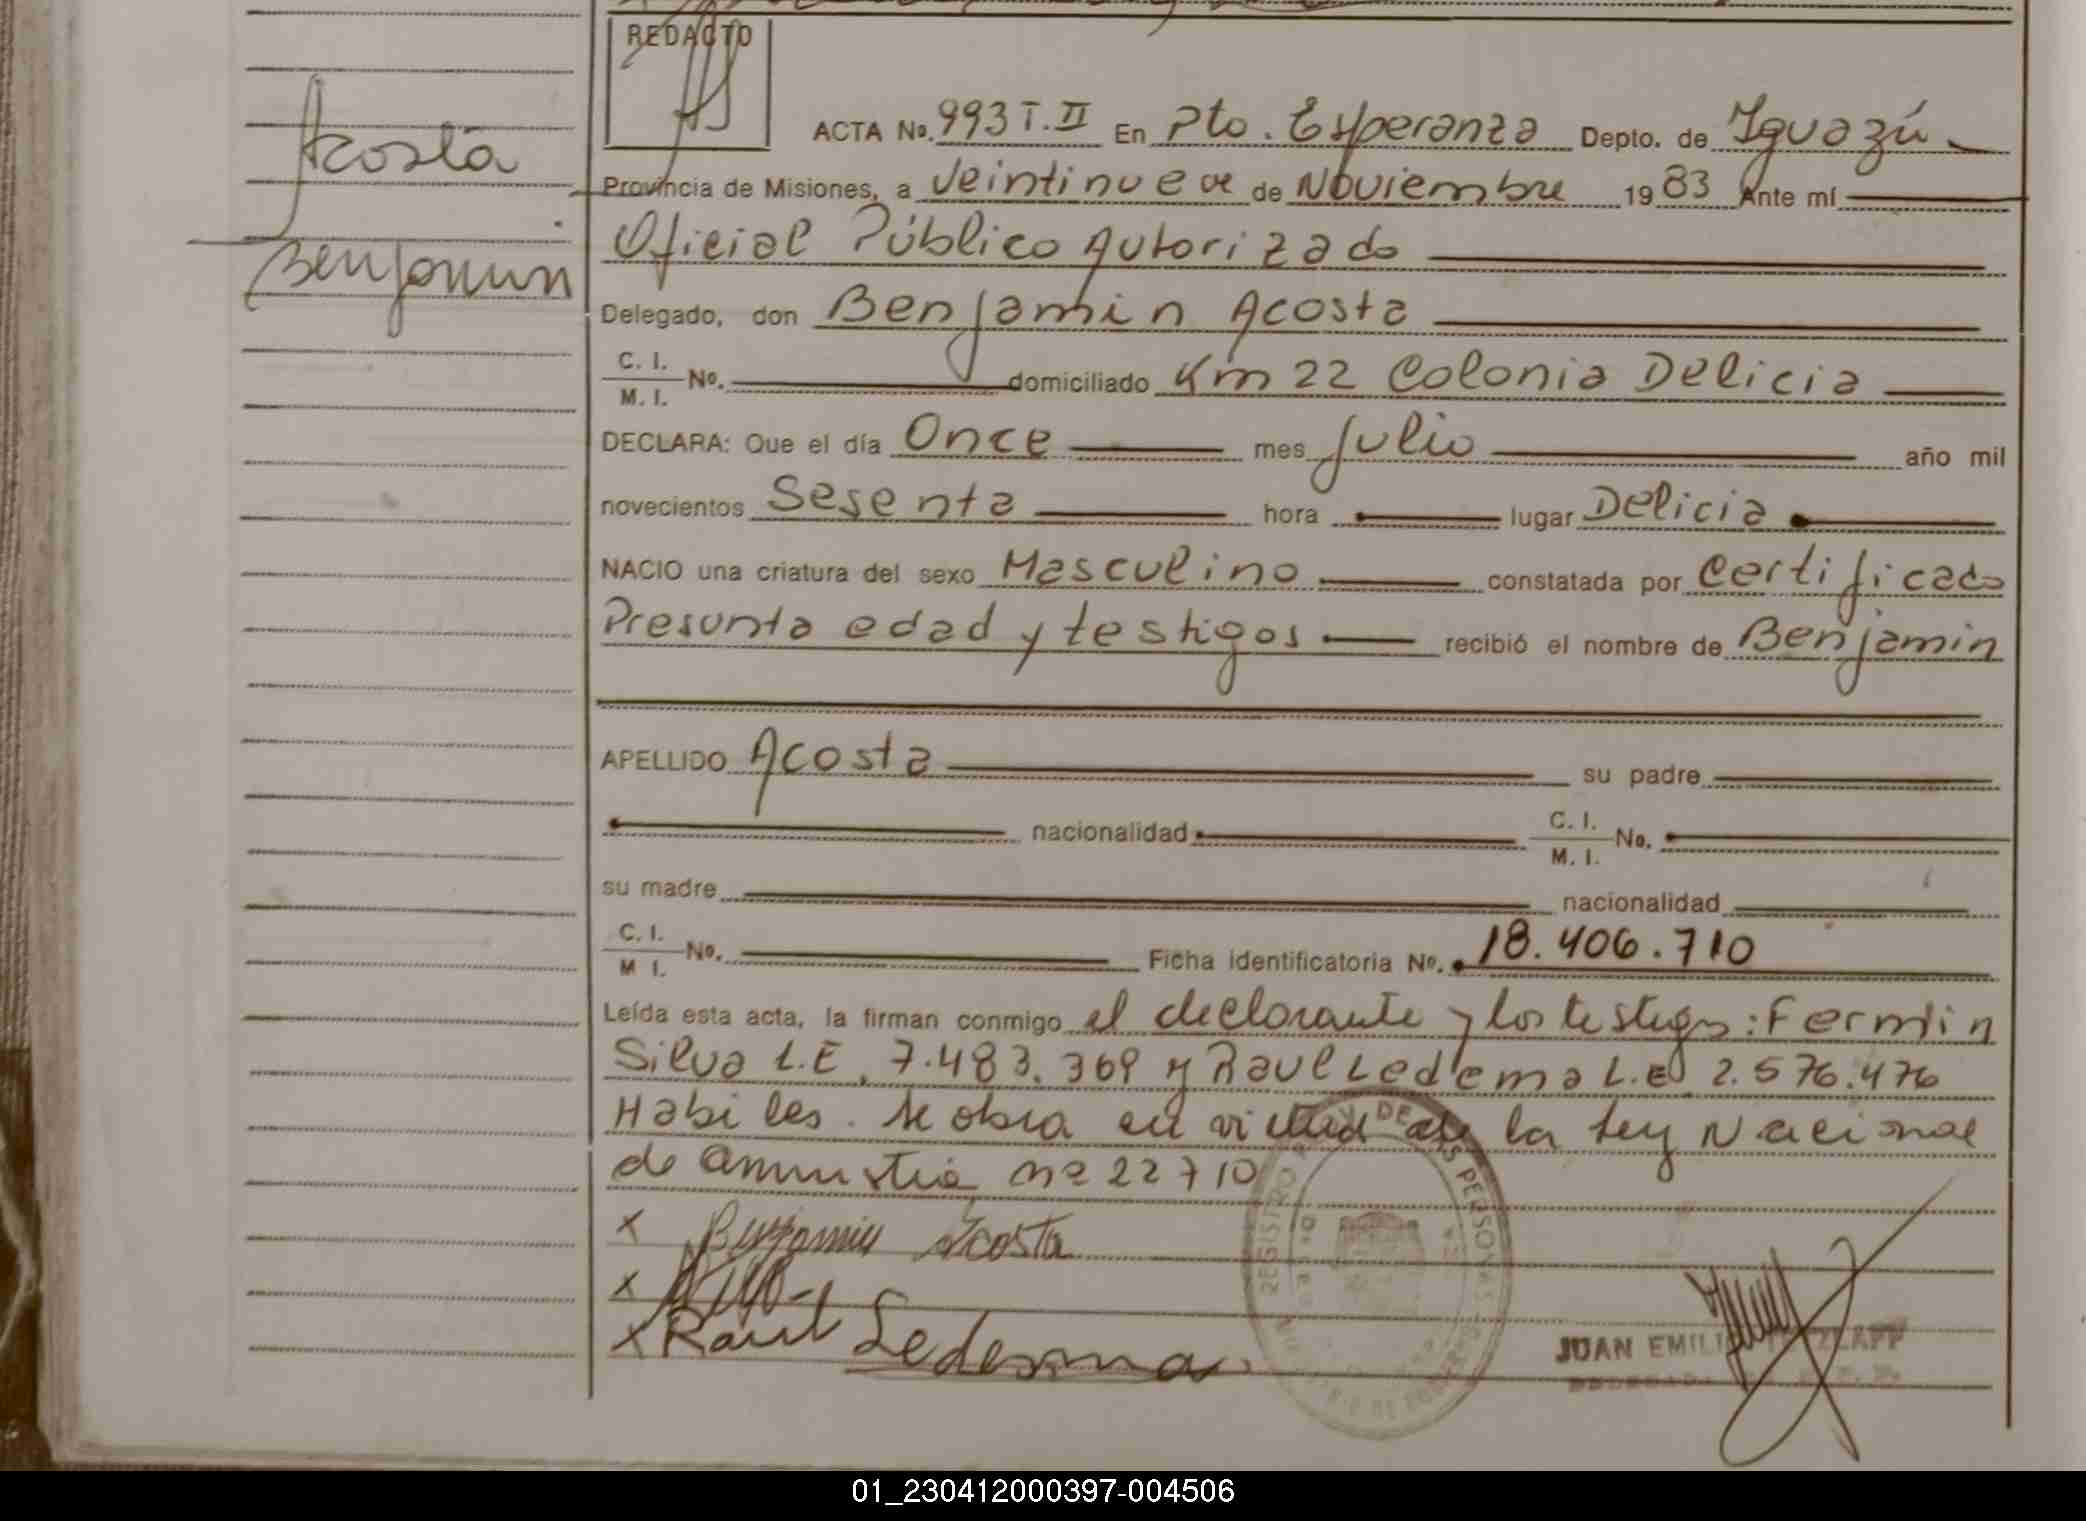 REDACTO
Acosta
Benjamin
ACTA No. 993 T. II En Pto. Esperanza Depto. de Iguazú
Provincia de Misiones, a veintinueve de Noviembre 1983 Ante mí
Oficial Público Autorizado
Delegado, don Benjamin Acosta
C. I.
M. I. No. domiciliado Km 22 Colonia Delicia
DECLARA: Que el día Once mes Julio año mil
novecientos Sesenta hora lugar Delicia
NACIO una criatura del sexo Masculino constatada por Certificado
Presunta edad y testigos recibió el nombre de Benjamin
APELLIDO Acosta su padre
nacionalidad C. I.
M. I. No.
su madre nacionalidad
C. I.
M I. No. Ficha identificatoria No. 18.406.710
Leída esta acta, la firman conmigo el declarante y los testigos: Fermin
Silva L.E. 7.483.369 y Raul Ledema L.E 2.576.476
Habiles. Se obra en virtud de la Ley Nacional
de amnistia nº 22710
x Benjamin Acosta
x
x Raul Ledesma
JUAN EMILIO
01_230412000397-004506